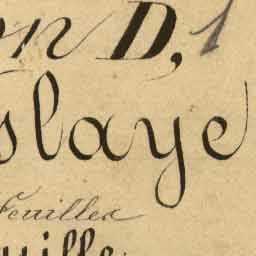 on D, 1
slaye
Feuilles
uille